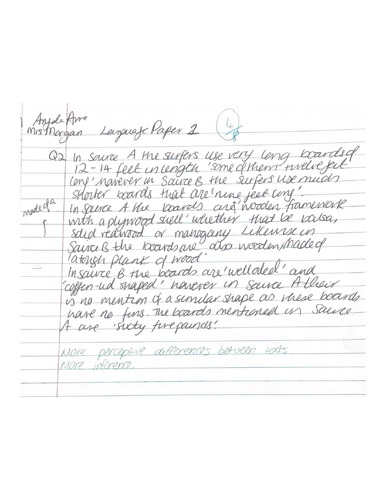 Angela Arro
Mrs Morgan Language Paper 1 4/8
Q2 In Source A the surfers use very long boards of
12-14 feet in length 'some of them twelve feet
long' however in Source B the surfers use much
shorter boards that are 'nine feet long'.
made of a
In Source A the boards and wooden framework
with a plywood shell' whether that be balsa,
solid redwood or mahogany. Likewise in
Source B the boards are also wooden, made of
'a tough plank of wood'
In source B the boards are 'well oiled' and
'coffin-lid shaped' however in Source A their
is no mention of a similar shape as these boards
have no fins. The boards mentioned in Source
A are 'sixty five pounds'.
More perceptive differences between texts
More inference.